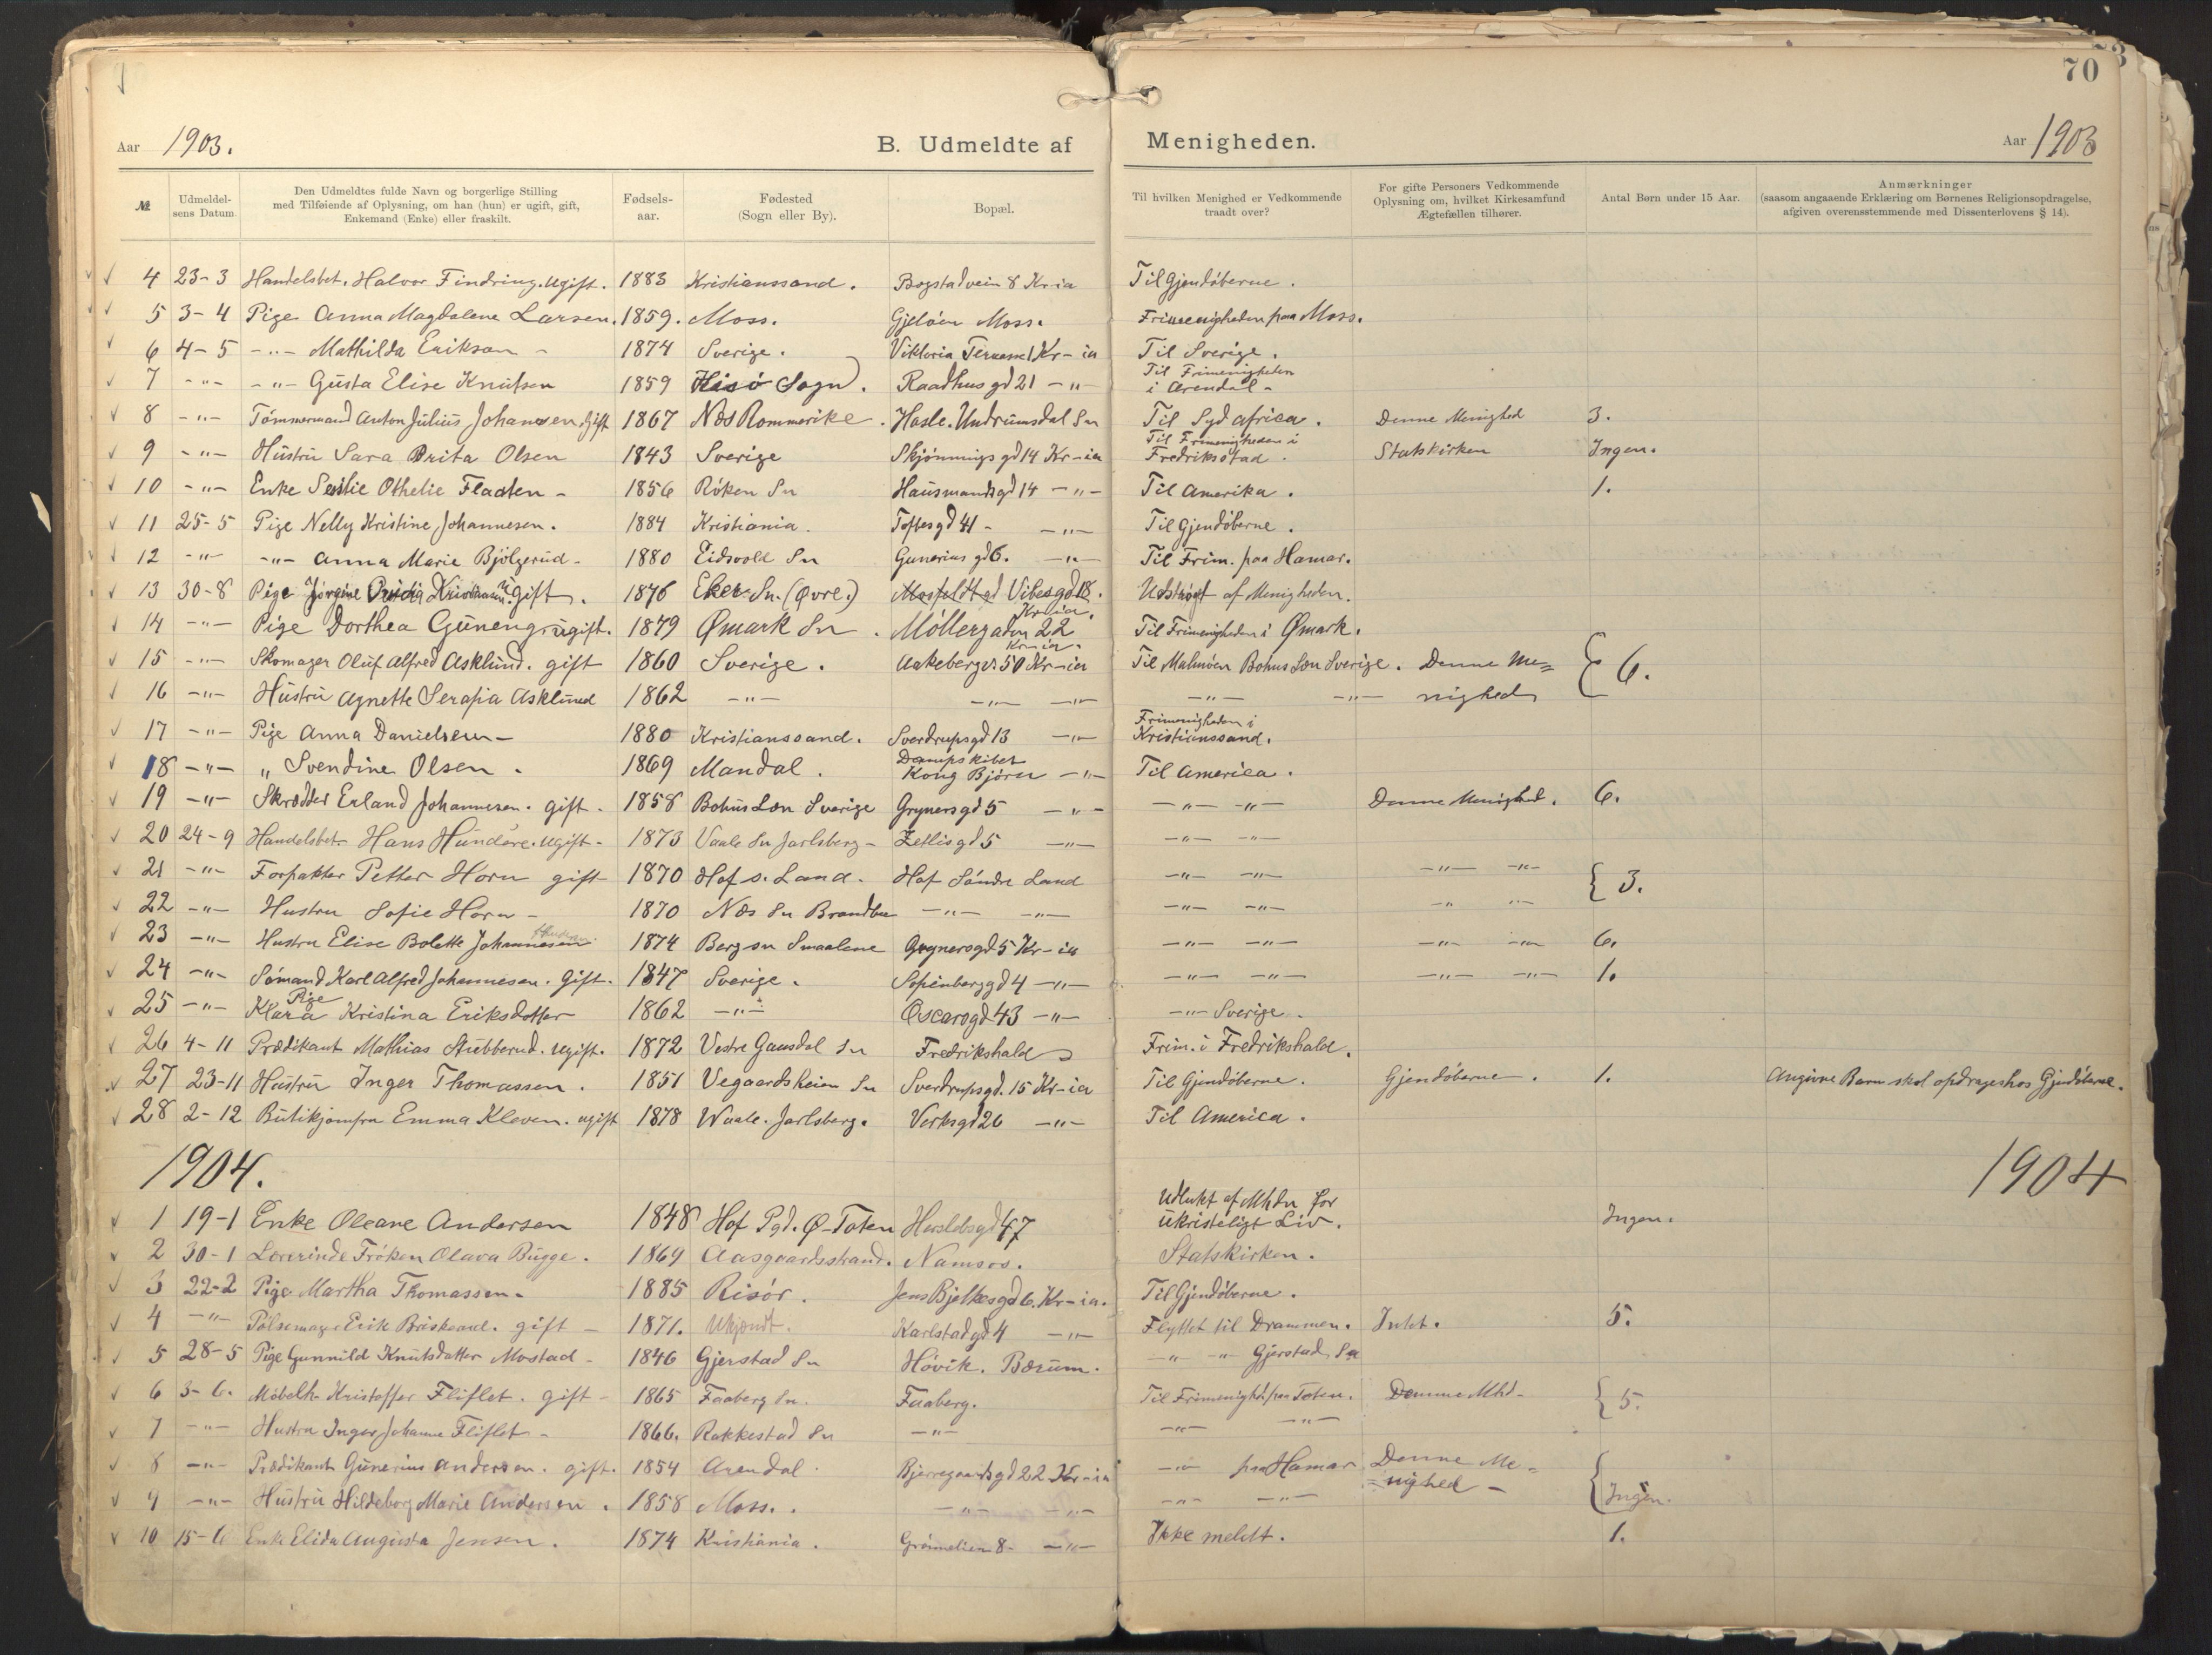 70
Aar 1903. B. Udmeldte af Menigheden. Aar 1903
№ Udmeldelsens Datum. Den Udmeldtes fulde Navn og borgerlige Stilling med Tilføiende af Oplysning, om han (hun) er ugift, gift, Enkemand (Enke) eller fraskilt. Fødselsaar. Fødested (Sogn eller By). Bopæl. Til hvilken Menighed er Vedkommende traadt over? For gifte Personers Vedkommende Oplysning om, hvilket Kirkesamfund Ægtefællen tilhører. Antal Børn under 15 Aar. Anmærkninger (saasom angaaende Erklæring om Børnenes Religionsopdragelse, afgiven overensstemmende med Dissenterlovens § 14).
4 23-3 Handelsbet. Halvor Findring. Ugift. 1883 Kristianssand. Bogstadvein 8 Kr-ia Til Gjendøberne.
5 3-4 Pige Anna Magdalene Larsen. 1859. Moss. Gjeløen Moss. Frimenigheden paa Moss.
6 4-5 -"- Mathilda Erikson - 1874 Sverige. Viktoria Terrasse 1 Kr-ia Til Sverige.
7 -"- -"- Gusta Elise Knutsen 1859 Hisø Sogn. Raadhusgd 21 -"- Til Frimenigheden i Arendal-
8 -"- Tømmermand Anton Julius Johansen, Gift 1867 Næs Rommerike. Hasle. Undrumsdal Sn Til Sydafrica. Denne Menighed 3.
9 -"- Hustru Sara Brita Olsen 1843 Sverige Skjønningsgd 14 Kr-ia Til Frimenigheden i Fredriksstad. Statskirken Ingen.
10 -"- Enke Othelie Fladten - 1856 Røken Sn Hausmandsgd 14 -"- Til Amerika. 1.
11 25-5 Pige Nelly Kristine Johannesen. 1884 Kristiania. Toftesgd 41- -"- Til Gjendøberne.
12 -"- -"- Anna Marie Bjølgerud- 1880 Eidsvold Sn Gunerius gd 6. -"- Til Frim. paa Hamar.
13 30-8 Pige Jørgine Kristiansen ugift. 1876 Eker Sn. (Øvre.) Vibesgd 18. Kr-ia. Udstrøgt af Menigheden.
14 -"- Pige Dorthea Guneng. ugift. 1879 Ømark Sn. Møllergaden 22 Kr-ia. Til Frimenigheden i Ømark.
15 -"- Skomager Oluf Alfred Asklund. gift 1860 Sverige. Aakebergv 50 Kr-ia Til Malmøen Bohus Len Sverige. Denne Me= { 6.
16 -"- Hustru Agnette Serafia Asklund 1862 -"- -"- -"- -"- -"- nighed
17 -"- Pige Anna Danielsen- 1880 Kristianssand. Sverdrupsgd 13 -"- Frimenigheden i Kristianssand.
18 -"- " Svendine Olsen. 1869 Mandal. Dampskibet Kong Bjørn -"- Til America.
19 -"- Skrædder Erland Johannesen. gift. 1858 Bohus Len Sverige Grynersgd 5 -"- -"- -"- Denne Menighed. 6.
20 24-9 Handelsbet. Hans Hundere. Ugift- 1873 Vaale Sn Jarlsberg- Zetlisgd 5 -"- -"- -"-
21 -"- Forpakter Petter Horn gift- 1870 Hof s. Land. Hof Søndre Land -"- -"- -"- -"- { 3.
22 -"- Hustru Sofie Horn - 1870 Næs Sn Brandbu -"- -"- -"- -"- -" -"-
23 -"- Hustru Elise Bolette Johannesen 1874 Berg sn Smaalene Grynersgd 5 Kr-ia -"- -"- -"- -"- 6.
24 -"- Sømand Karl Alfred Johannesen. Gift. 1847 Sverige. Sofienberggd 4 -"- -"- -"- -"- -"- 1.
25 -"- Pige Klara Kristina Eriksdotter 1862 -"- Oscarsgd 43 -"- -"- Sverige.
26 4-11 Prædikant Mathias Stubberud. Ugift. 1872 Vestre Gausdal Sn Fredrikshald Frim. i Fredrikshald.
27 23-11 Hustru Inger Thomassen. 1851 Vegaardsheien Sn Sverdrupsgd. 15 Kr-ia Til Gjendøberne. Gjendøberne. 1. Angivne Barn skal opdrages hos Gjendøberne.
28 2-12 Butikjomfru Emma Kleven. ugift 1878 Waale. Jarlsberg. Verksgd 26 -"- Til America.
1904. 1904
1 19-1 Enke Oleane Andersen 1848 Hof Pgd. Ø-Toten Herslebsgd 47 Udlukt af Mhdn for ukristeligt Liv. Ingen.
2 30-1 Lærerinde Frøken Olava Bugge. 1869 Aasgaardsstrand. Namsos. Statskirken.
3 22-2 Pige Martha Thomassen- 1885 Risør. Jens Bjelkesgd 6. Kr-ia. Til Gjendøberne.
4 -"- Pølsemager Erik. gift - 1871. Ukjendt. Karlstadgd 4 -"- Flyttet til Drammen. Intet. 5.
5 28-5 Pige Gunnild Knutsdatter Mostad- 1846 Gjerstad Sn Høvik. Bærum. -"- -"- Gjerstad Sn
6 3-6. Møbelh. Kristoffer Fliflet. gift- 1865 Faaberg Sn. Faaberg. Til Frimenighd. paa Toten. Denne Mhd- { 5.
7 -"- Hustru Inger Johanne Fliflet- 1866. Rakkestad Sn -"- -"- -"-
8 -"- Prædikant Gunerius Andersen. gift. 1854 Arendal. Bjerregaardsgd 22 Kr-ia -"- paa Hamar Denne Me= {
9 -"- Hustru Hildeborg Marie Andersen. 1858 Moss. -"- -"- -"- -"- =nighed - Ingen.
10 15-6 Enke Elida Augusta Jensen. 1874 Kristiania. Grønnelien 8- -"- Ikke meldt. 1.